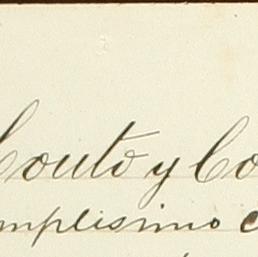 Couto y Co
mplisimo c